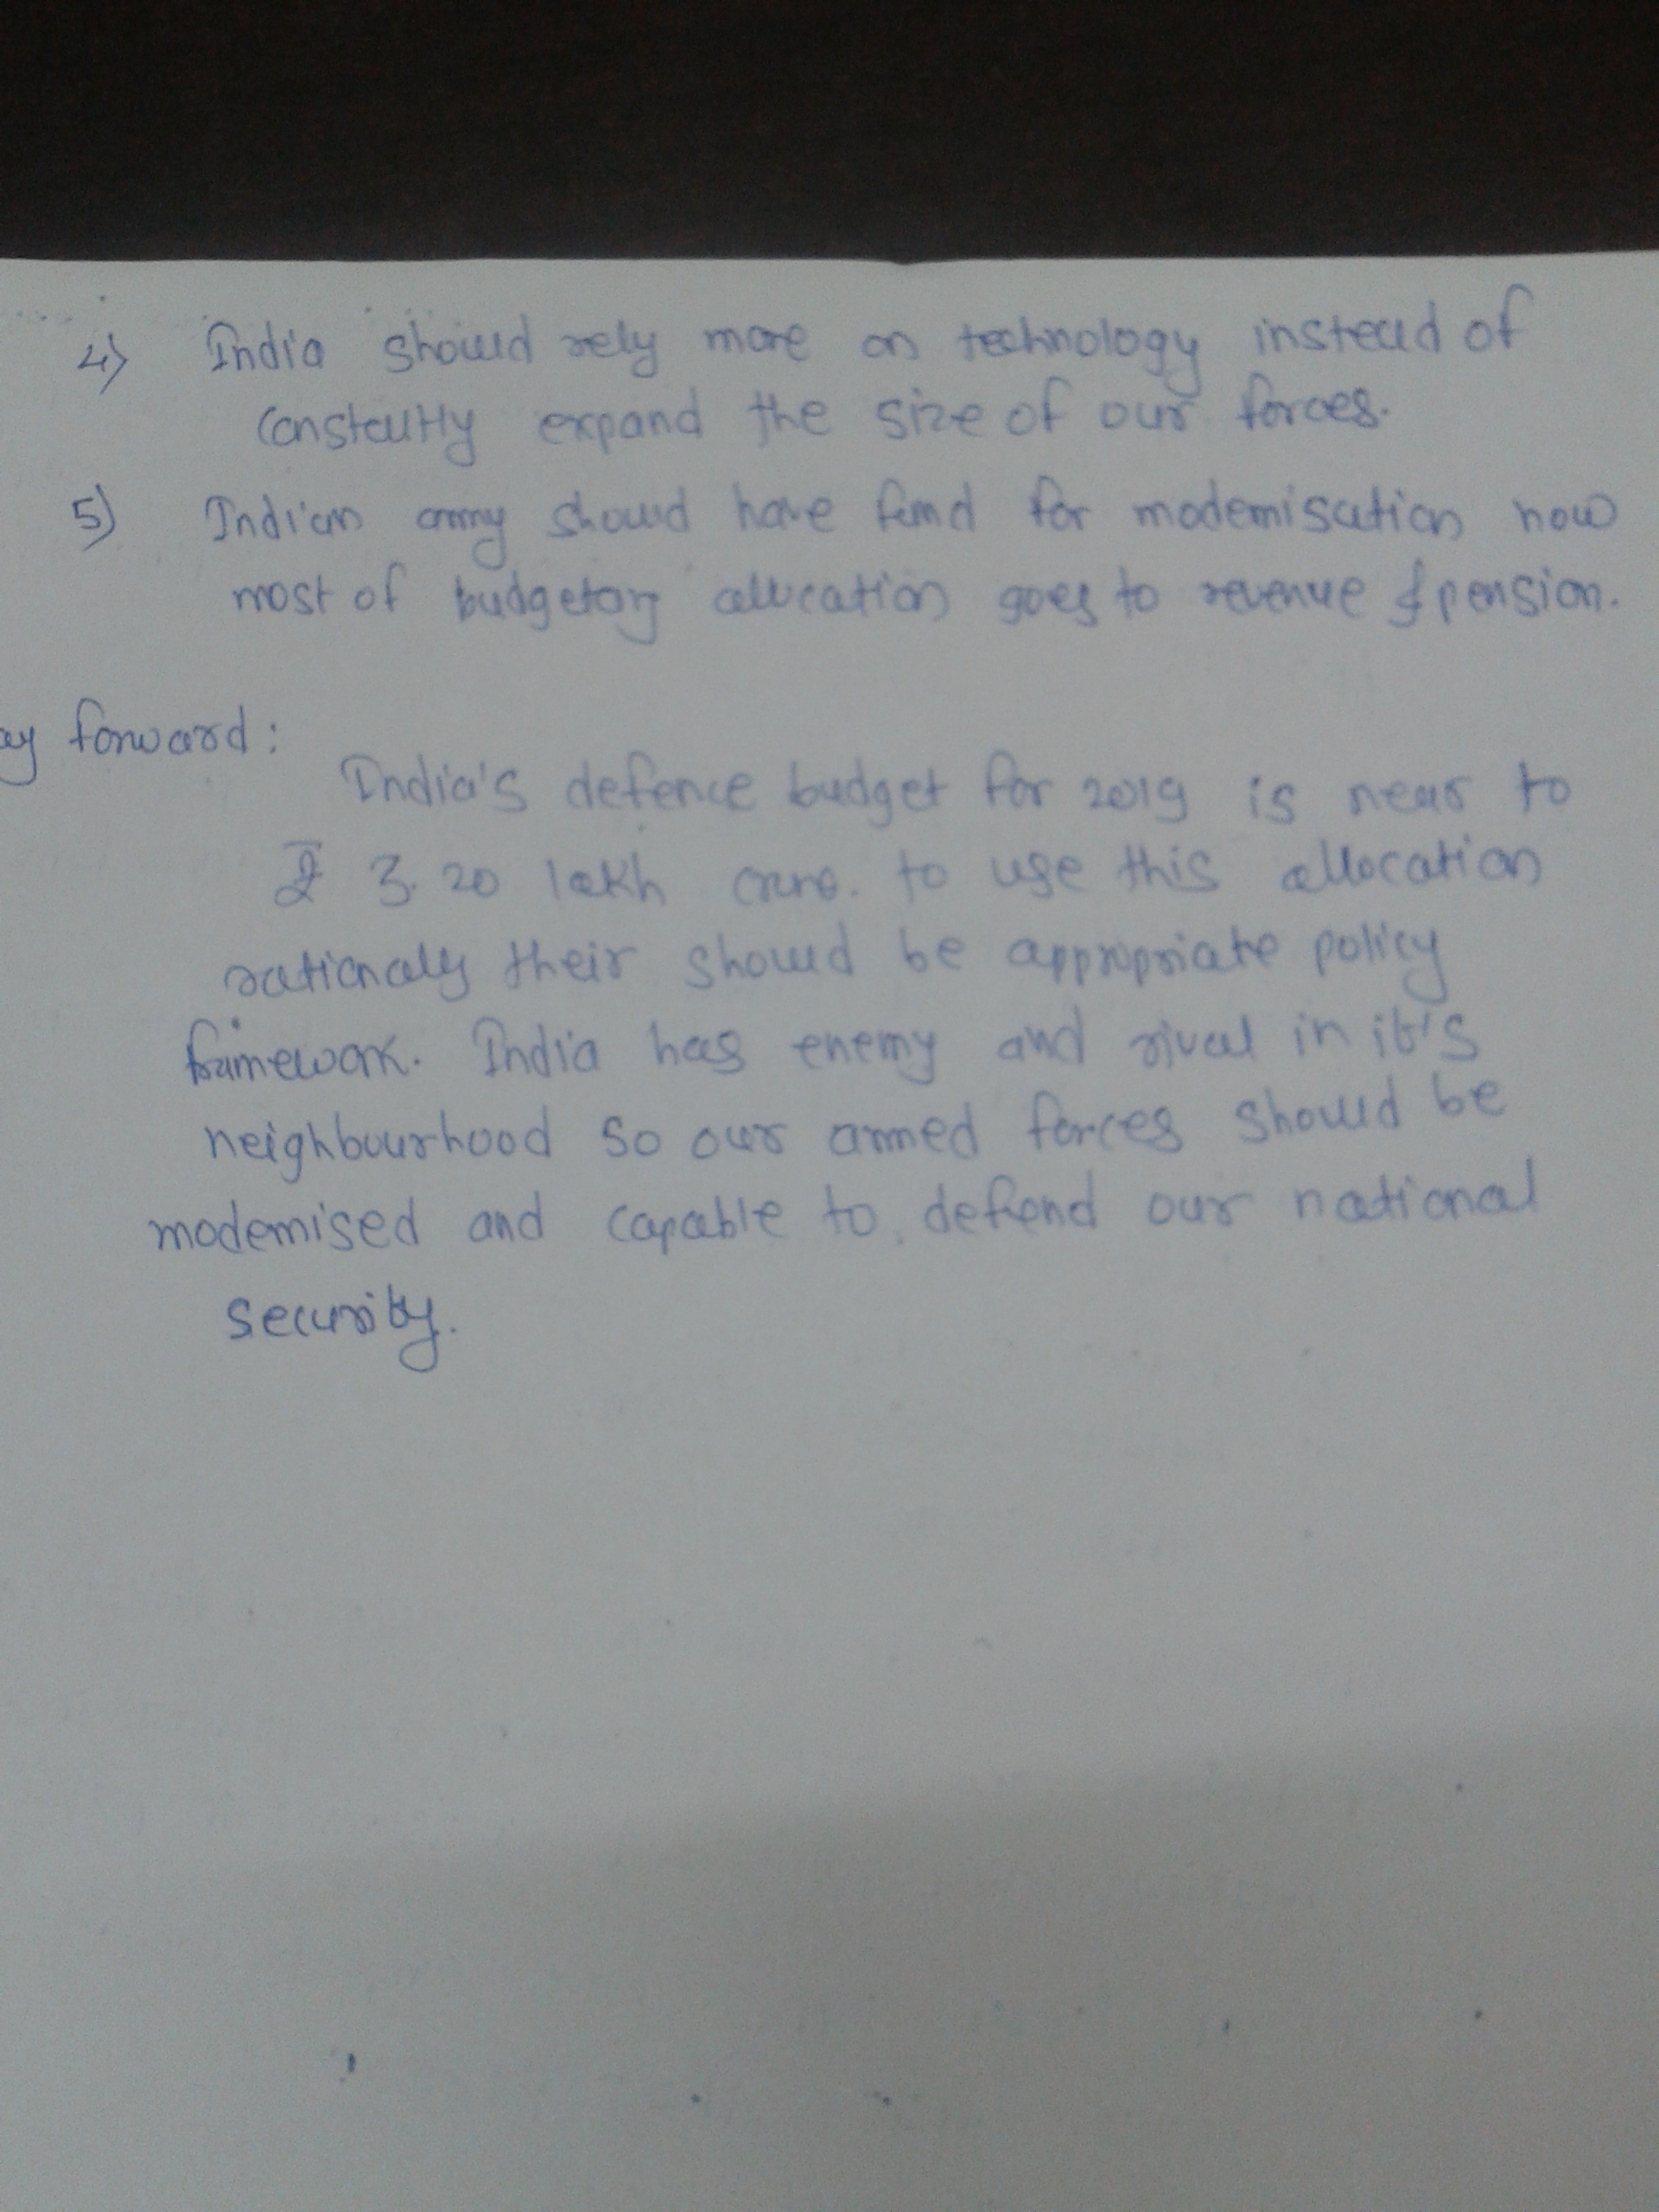 4) India should rely more on technology instead of
constantly expand the size of our forces.
5) Indian army should have fund for modernisation now
most of budgetory allocation goes to revenue & pension.
ay forward:
India's defence budget for 2019 is near to
₹ 3.20 lakh crore. to use this allocation
rationaly their should be appropriate policy
framework. India has enemy and rival in it's
neighbourhood so our armed forces should be
modernised and capable to defend our national
security.